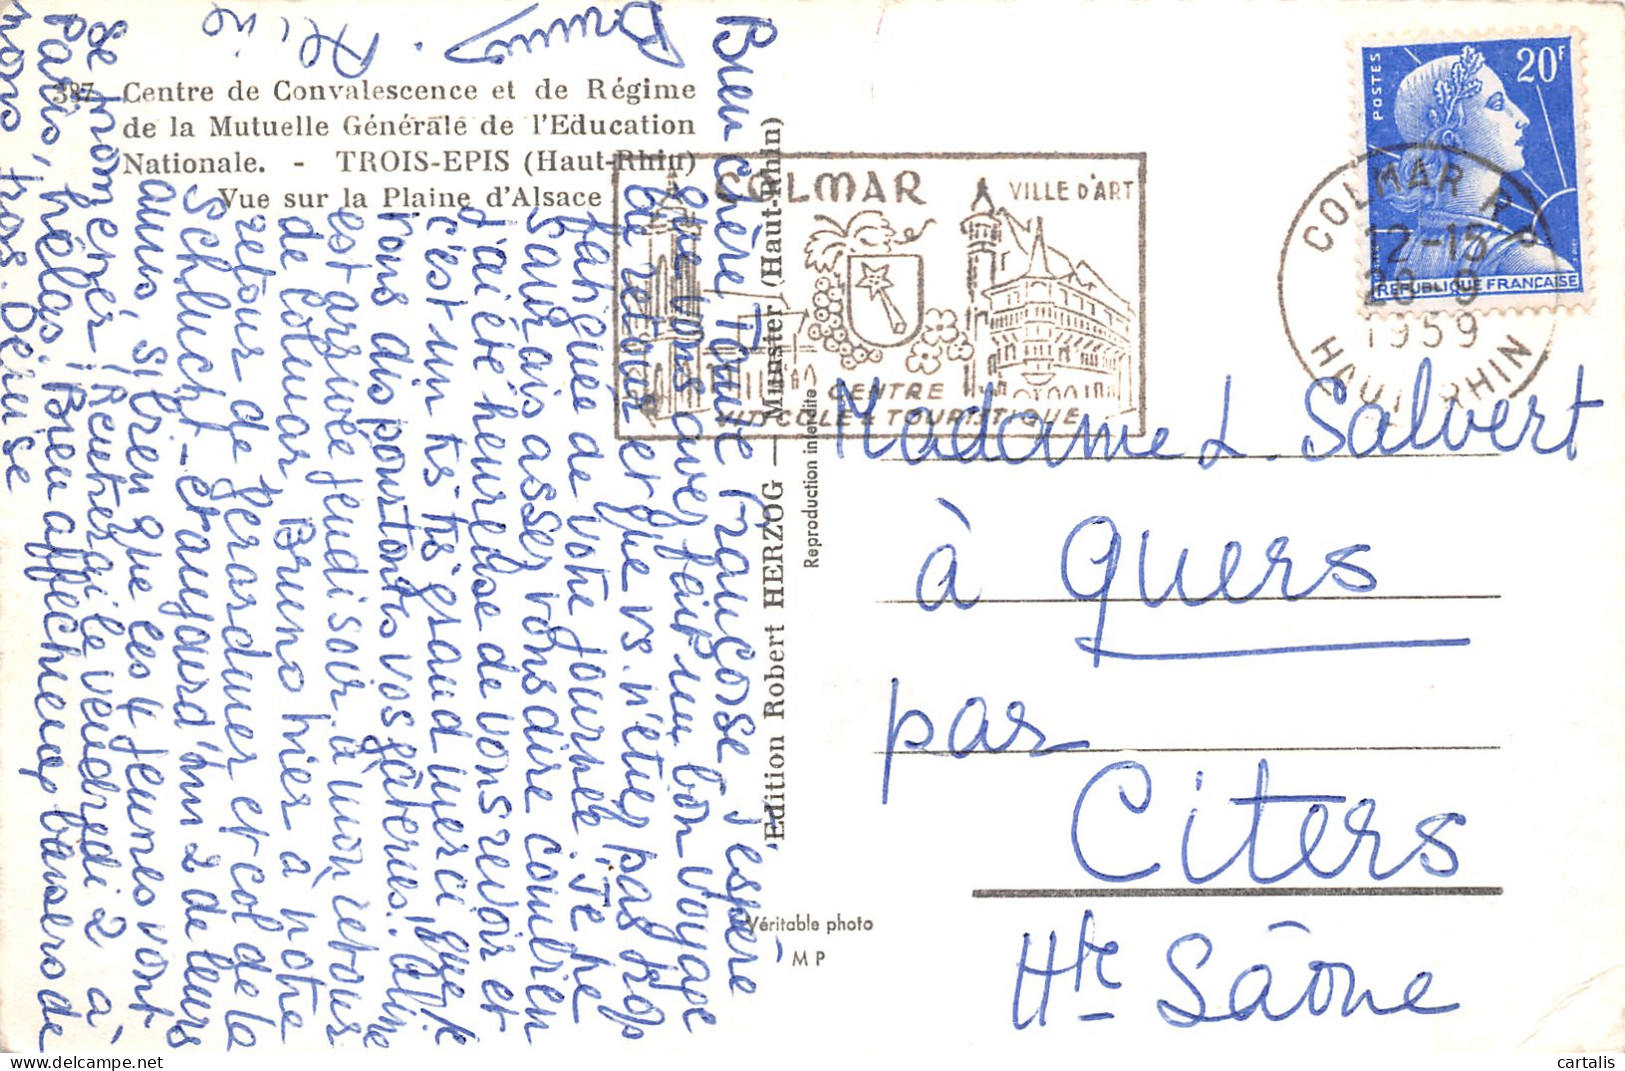 387 Centre de Convalescence et de Régime
de la Mutuelle Générale de l'Education
Nationale. - TROIS-EPIS (Haut-Rhin)
Vue sur la Plaine d'Alsace
Bien chère Tante Françoise J'espère
que vous avez fait un bon voyage
de retour et que vs. n'étiez pas trop
fatiguée de votre journée. Je ne
saurais assez vous dire combien
j'ai été heureuse de vous revoir et
c'est un ts ts grand merci que je
vous dis pour toutes vos gâteries. Aline
est arrivée jeudi soir à union, retour
de Colmar, Bruno hier à notre
retour de Gerardmer et col de la
Schlucht - et aujourd'hui 2 de leurs
amis, si bien que les 4 jeunes vont
se promener ! Rentrerai le vendredi 2 à
Paris, hélas. Bien affectueux baisers de
nous tros. Denise
Aline . Bruno
Edition Robert HERZOG — Munster (Haut-Rhin)
Reproduction interdite
Véritable photo
M P
COLMAR
VILLE D'ART
CENTRE
VITICOLE & TOURISTIQUE
POSTES
20F
REPUBLIQUE FRANÇAISE
COLMAR R.P
12-15
1959
HAUT-RHIN
Madame L. Salvert
à Quers
par
Citers
Hte Saône
cartalis